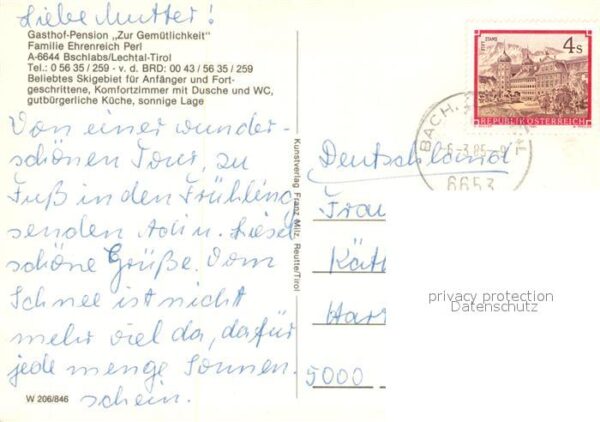 Liebe Mutter!
Gasthof-Pension „Zur Gemütlichkeit"
Familie Ehrenreich Perl
A-6644 Bschlabs/Lechtal-Tirol
Tel.: 0 56 35 / 259 - v. d. BRD: 00 43 / 56 35 / 259
Beliebtes Skigebiet für Anfänger und Fort-
geschrittene, Komfortzimmer mit Dusche und WC,
gutbürgerliche Küche, sonnige Lage
Von einer wunder-
schönen Tour, zu
Fuß in den Frühling
senden Adi u. Liesel
schöne Grüße. Vom
Schnee ist nicht
mehr viel da, dafür
jede menge Sonnen-
schein.
W 206/846
Kunstverlag Franz Milz, Reutte/Tirol
STIFT STAMS
4 S
REPUBLIK ÖSTERREICH
BACH,
-3.85-9
6653
Deutschland
Frau
Kät
Har
5000
privacy protection
Datenschutz